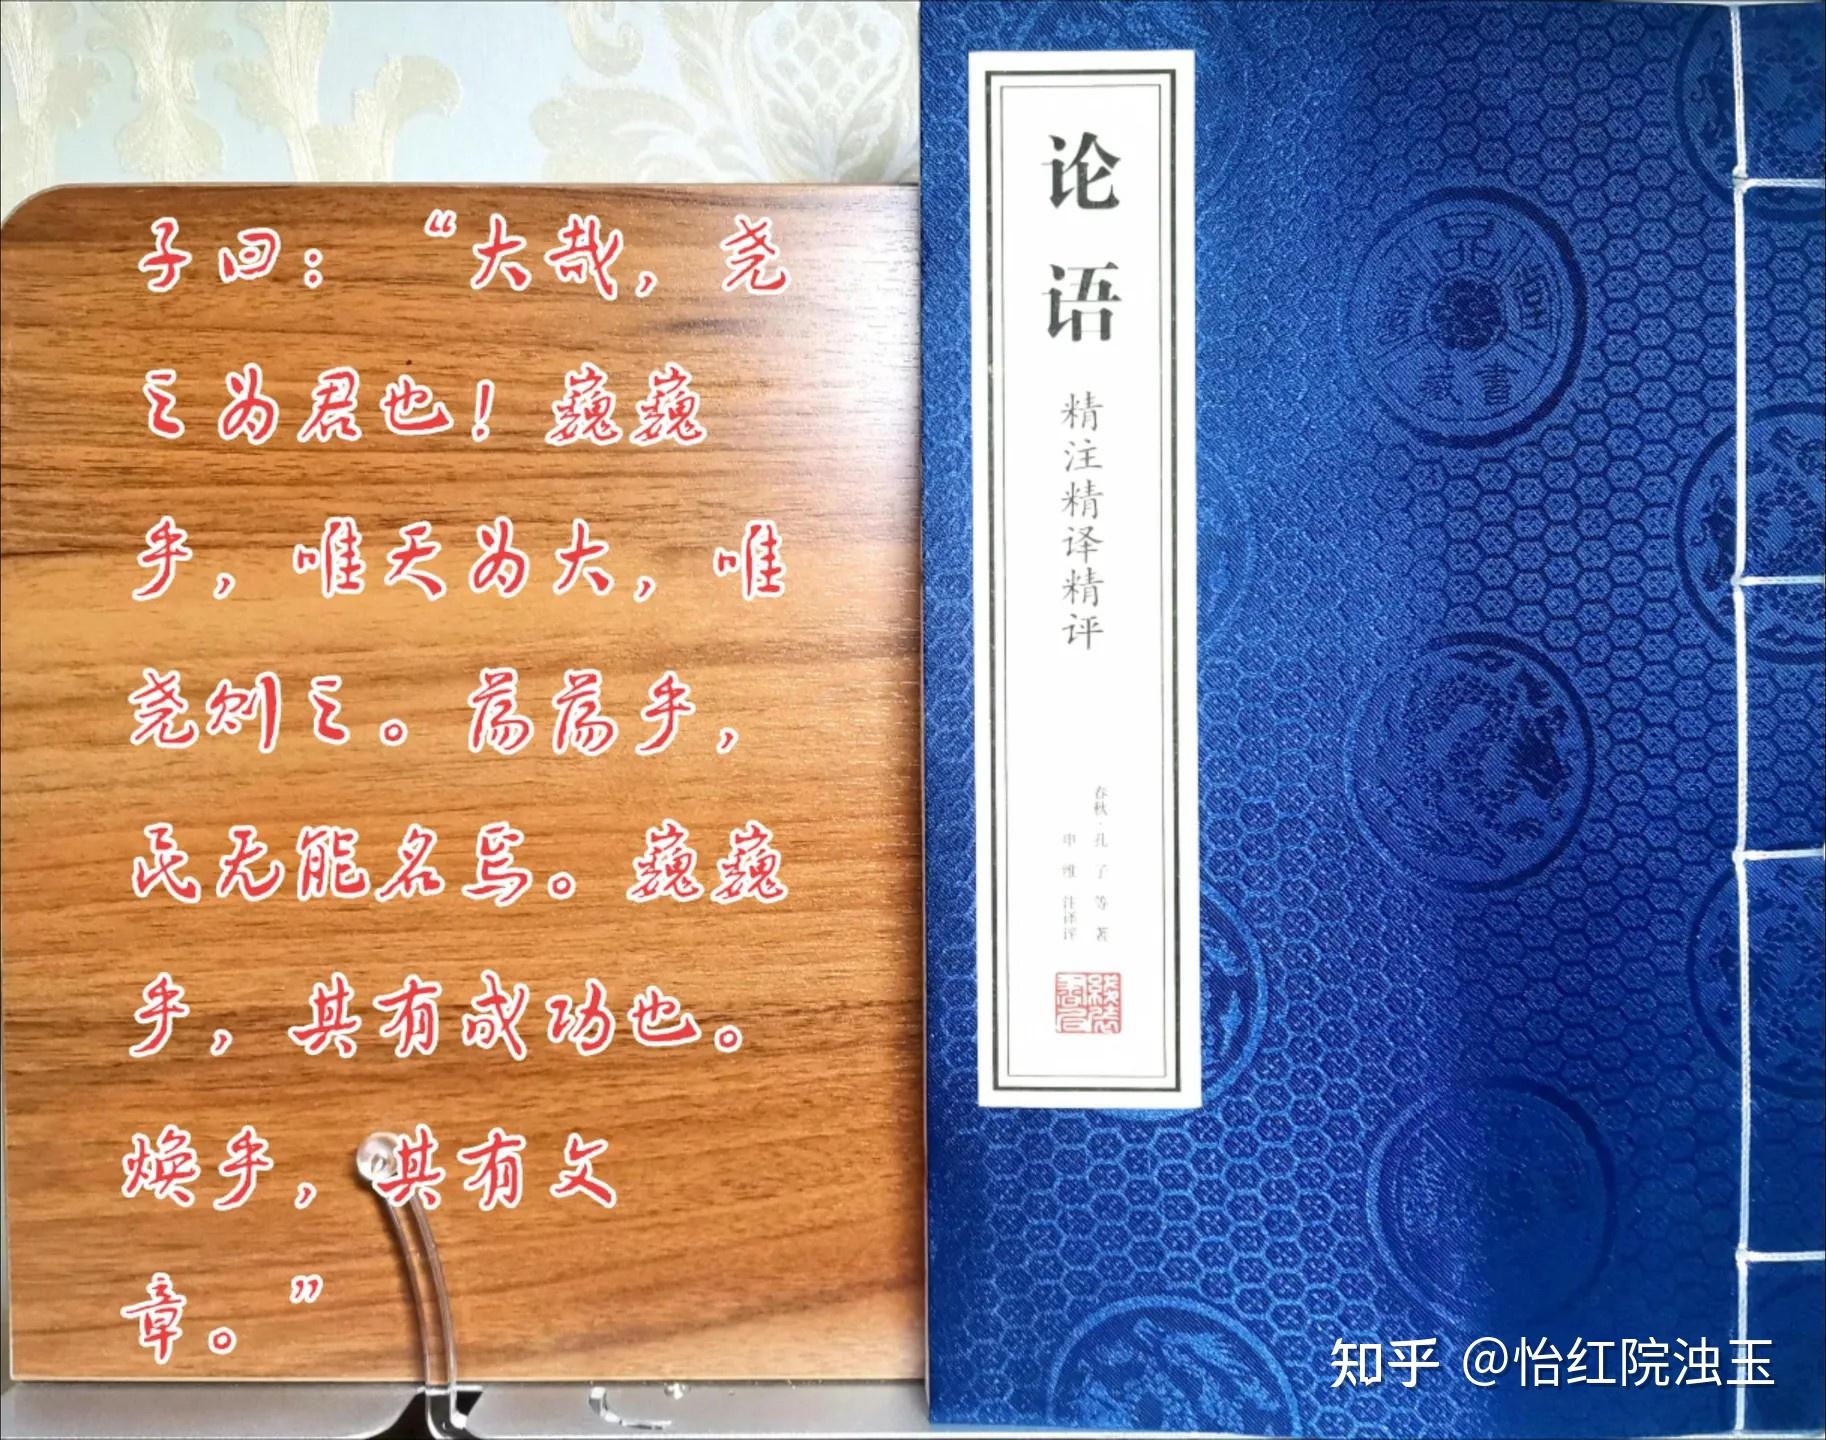 子曰：“大哉，尧
之为君也！巍巍
乎，唯天为大，唯
尧则之。荡荡乎，
民无能名焉。巍巍
乎，其有成功也。
焕乎，其有文
章。”
论语
精注精译精评
春秋·孔子等著
申维注译评
线装书局
知乎 @怡红院浊玉